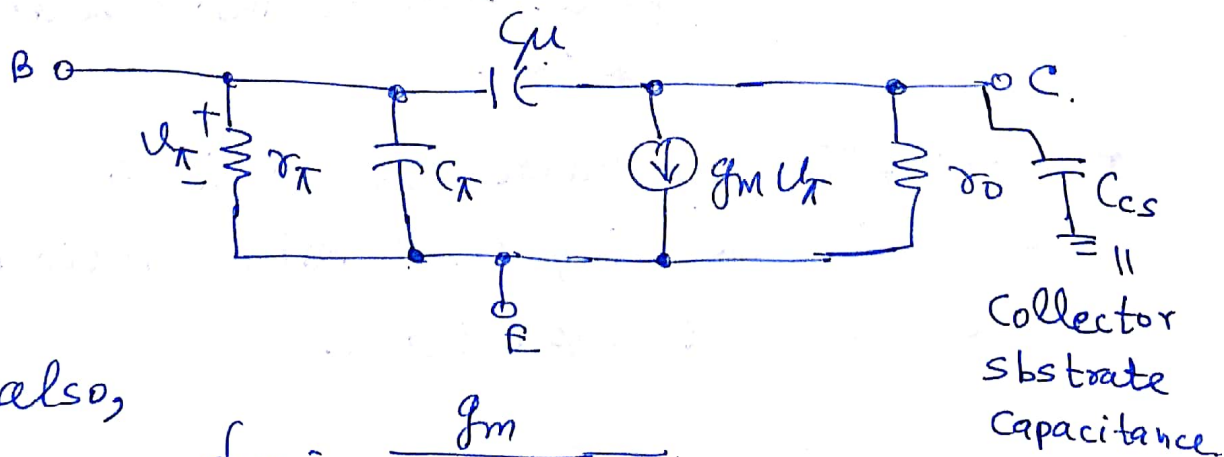 Cμ
B
C.
+
vπ
-
rπ
Cπ
gm vπ
r0
Ccs
E
Collector
sbstrate
Capacitance
also,
gm